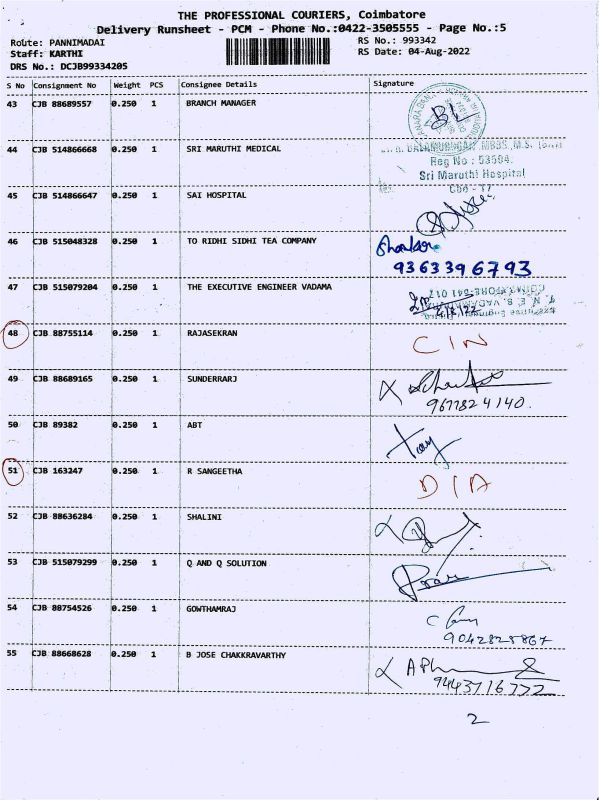 THE PROFESSIONAL COURIERS, Coimbatore
Delivery Runsheet - PCM - Phone No.:0422-3505555 - Page No.:5
Route: PANNIMADAI RS No.: 993342
Staff: KARTHI RS Date: 04-Aug-2022
DRS No.: DCJB99334205
S No Consignment No Weight PCS Consignee Details Signature
43 CJB 88689557 0.250 1 BRANCH MANAGER
44 CJB 514866668 0.250 1 SRI MARUTHI MEDICAL
Dr. R. BALAMURUGAN MBBS., M.S.
Reg No : 53504.
Sri Maruthi Hospital
45 CJB 514866647 0.250 1 SAI HOSPITAL
46 CJB 515048328 0.250 1 TO RIDHI SIDHI TEA COMPANY
9363396793
47 CJB 515079204 0.250 1 THE EXECUTIVE ENGINEER VADAMA
48 CJB 88755114 0.250 1 RAJASEKRAN CIN
49 CJB 88689165 0.250 1 SUNDERRARJ
9677824140.
50 CJB 89382 0.250 1 ABT
51 CJB 163247 0.250 1 R SANGEETHA DIA
52 CJB 88636284 0.250 1 SHALINI
53 CJB 515079299 0.250 1 Q AND Q SOLUTION
54 CJB 88754526 0.250 1 GOWTHAMRAJ
9042828867
55 CJB 88668628 0.250 1 B JOSE CHAKKRAVARTHY
9443716772
2